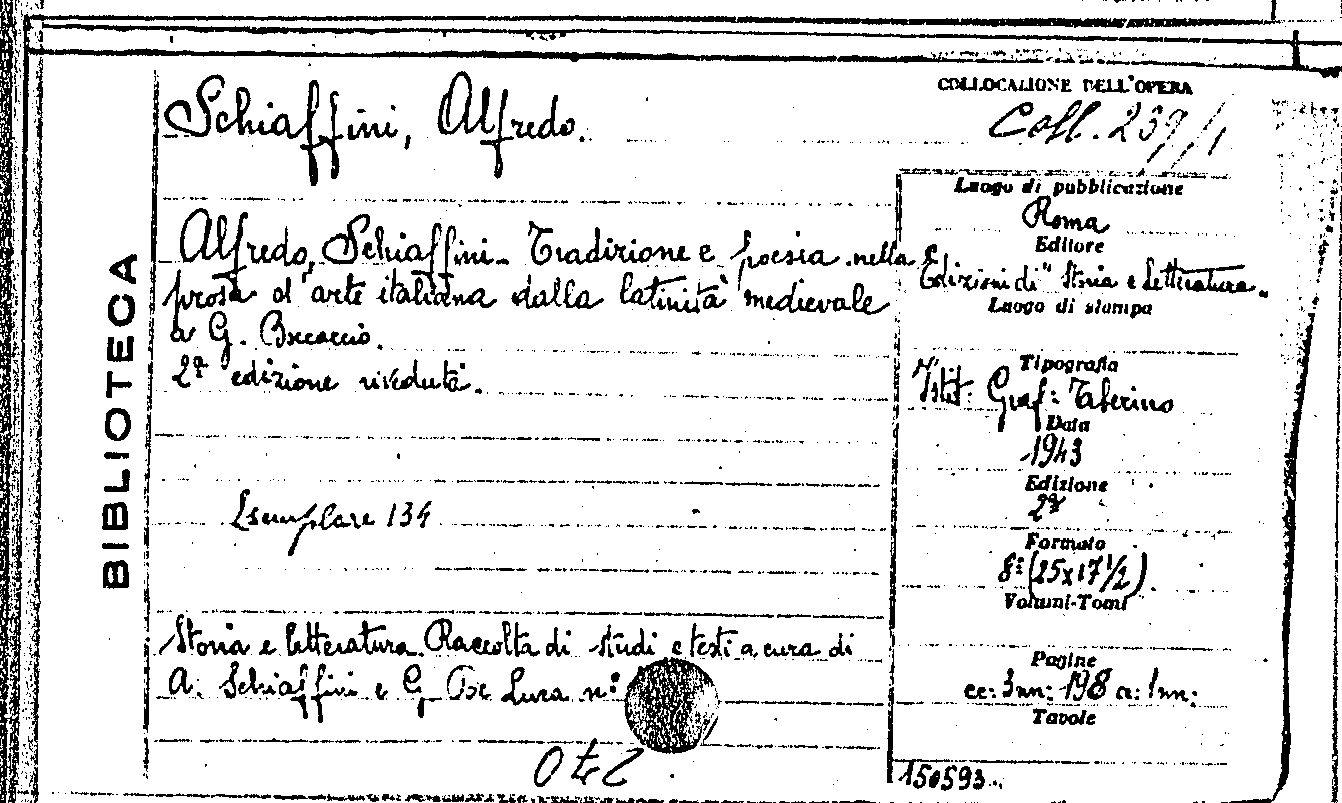 BIBLIOTECA
Schiaffini, Alfredo.
Alfredo Schiaffini - Tradizione e poesia nella
prosa d'arte italiana dalla latinità medievale
a G. Boccaccio.
2ª edizione riveduta.
Esemplare 134
Storia e letteratura. Raccolta di studi e testi a cura di
A. Schiaffini e G. De Luca n:
COLLOCAZIONE DELL'OPERA
Coll. 239/1
Luogo di pubblicazione
Roma
Editore
Edizioni di "Storia e Letteratura.
Luogo di stampa
Tipografia
Istit: Graf: Tiberino
Data
1943
Edizione
2ª
Formato
8° (25x17 1/2)
Volumi-Tomi
Pagine
cc: 3nn: 198 cc: 1nn:
Tavole
150593